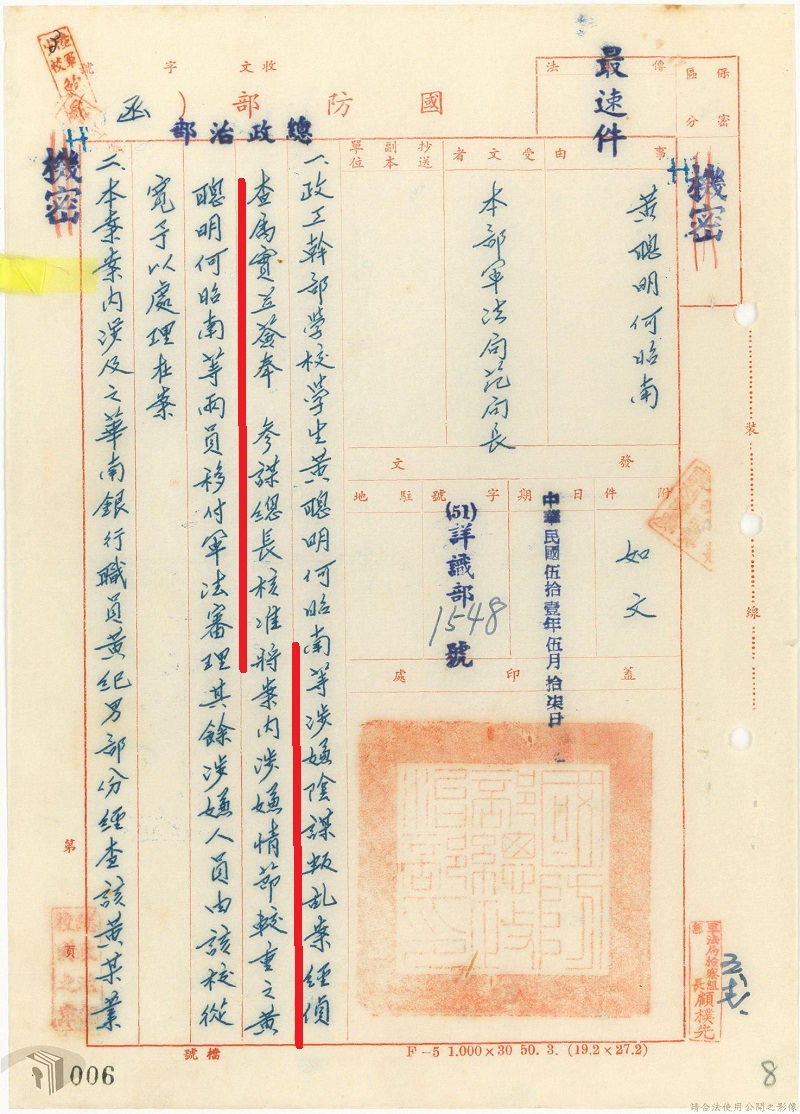 保密區分
機密
傳法
最速件
國防部
總政治部
(函)
收文
字
號
機密
事由
黃聰明何昭南
受文者
本部軍法局范局長
抄送副本單位
發文
附件
如文
日期
中華民國伍拾壹年伍月拾柒日
字號
(51)詳識部1548號
駐地
蓋印處
一、政工幹部學校學生黃聰明何昭南等涉嫌陰謀叛亂案經偵
查屬實並簽奉 參謀總長核准將案內涉嫌情節較重之黃
聰明何昭南等兩員移付軍法審理其餘涉嫌人員由該校從
寬予以處理在案
二、本案案內涉及之華南銀行職員黃紀男部份經查該黃某業
裝
線
第
頁
軍法局檢察組
組長顧樸先
檔號
F-5 1.000×30 50. 3. (19.2×27.2)
006
8
請合法使用公開之影像